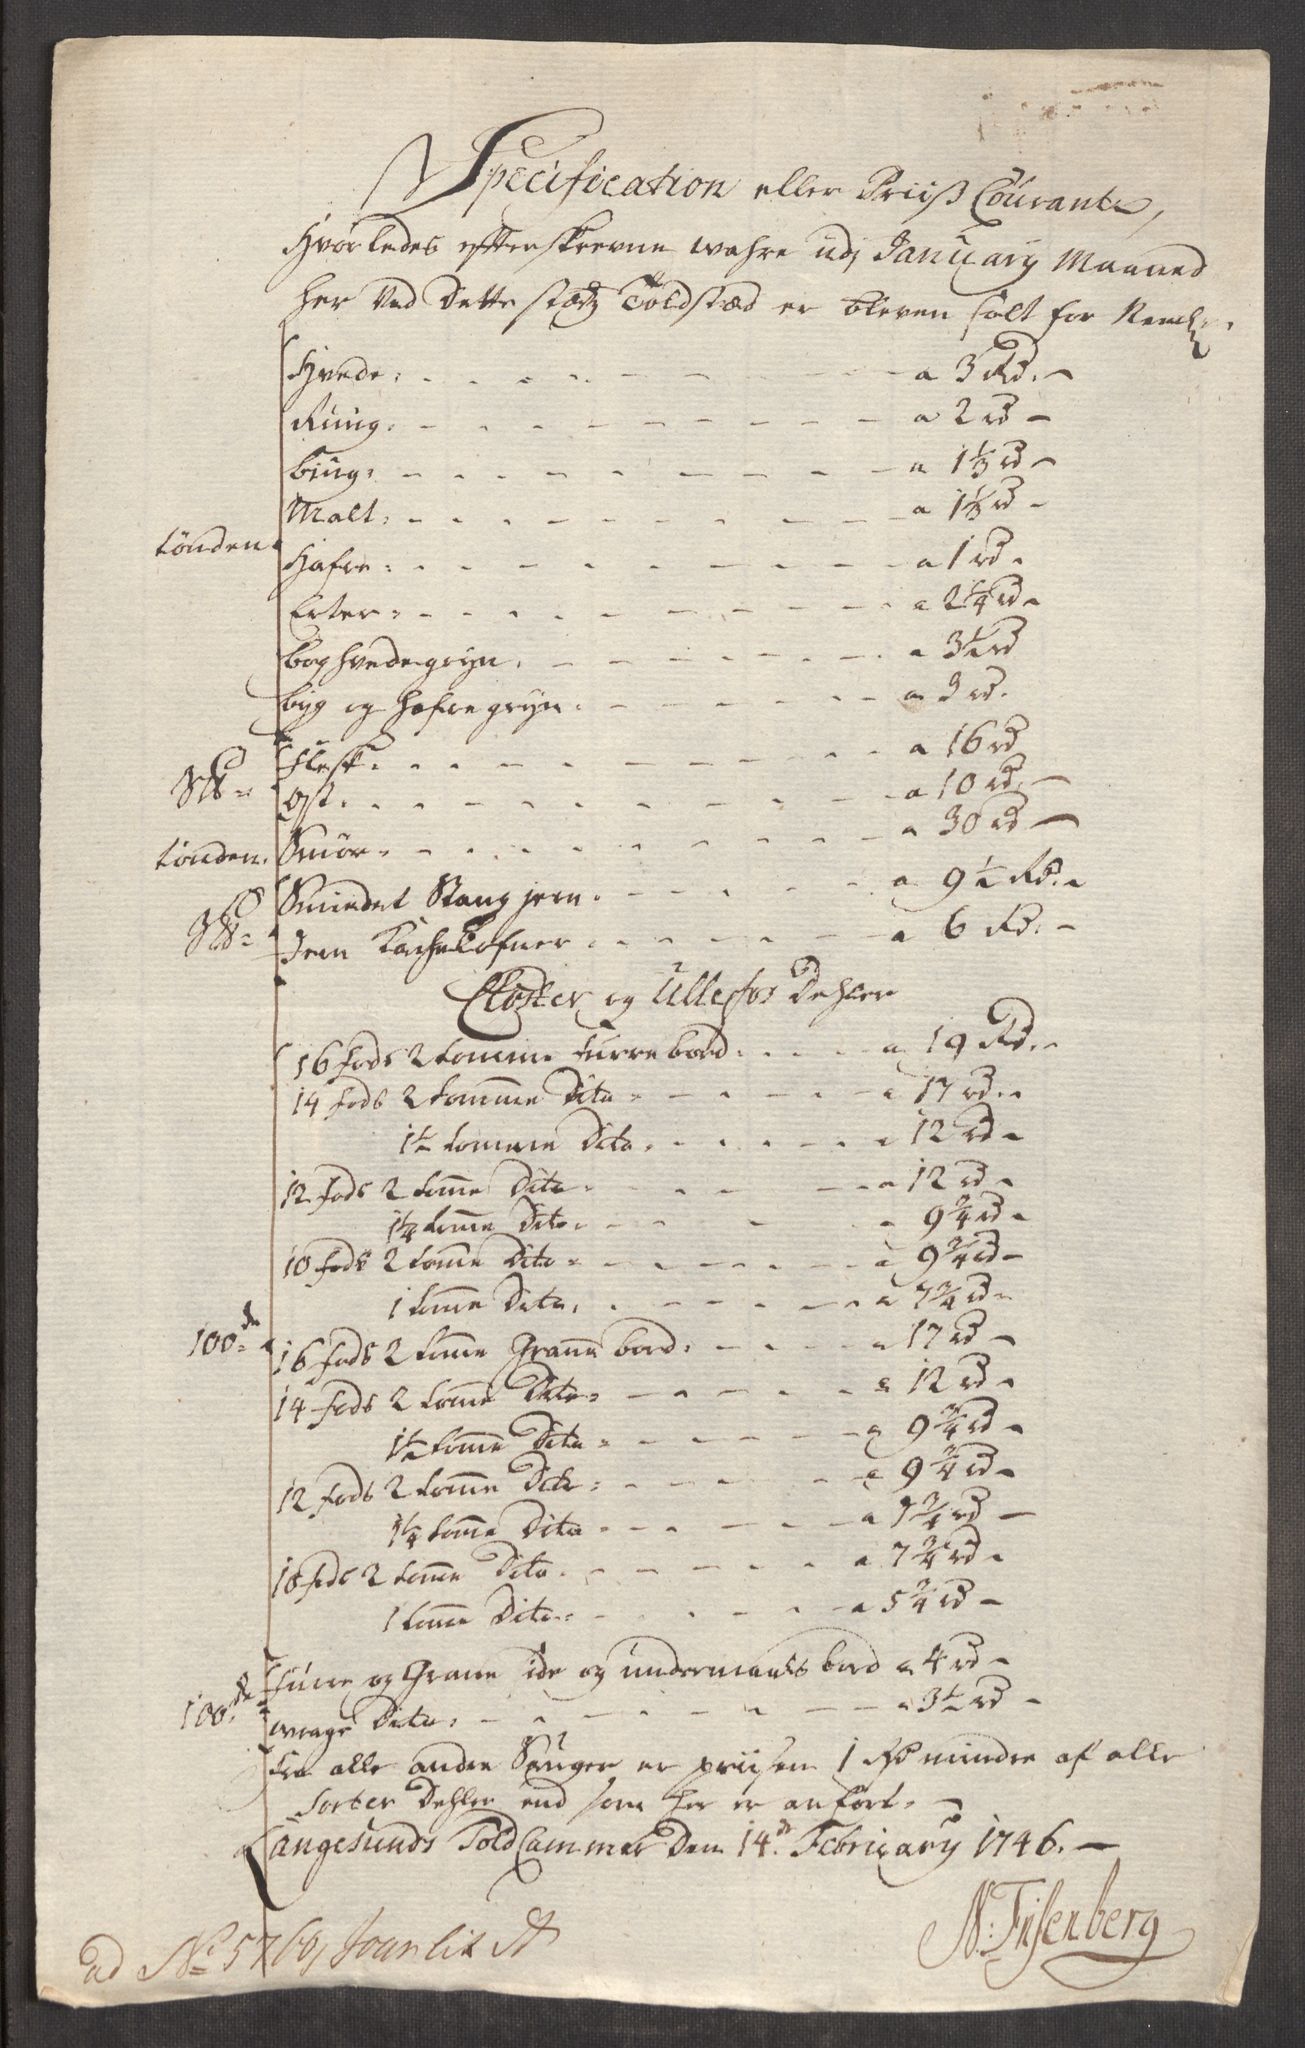 Specification eller Priiß Courante,
Hvorledes efterskrevne wahre udj January Maaned
her ved dette stædz Toldstæd er bleven solt for Neml:
Hvede a 3 Rd.
Rúúg a 2 rd
biúg a 1 1/3 rd
Malt a 1 1/3 rd
tønden
Hafre a 1 rd
Erter a 2 1/4 rd
boghvedegryn a 3 1/2 rd
byg og hafregryn a 3 rd.
Flesk a 16 rd
Ost a 10 rd
tønden Smør a 30 rd
Smiedet Stang jern a 9 1/2 Rd.
Jern Kachelofner a 6 Rd.
Closter og Ullefos Dehler
16 fods 2 tomme furrebord a 19 Rd.
14 fods 2 tomme Dito a 17 rd.
1 1/2 tomme Dito a 12 rd
12 fods 2 tomme Dito a 12 rd
1 1/4 tomme Dito a 9 3/4 rd
10 fods 2 tomme Dito a 9 3/4 rd
1 tomme Dito a 7 3/4 rd
100de 16 fods 2 tomme Grannebord a 17 rd
14 fods 2 tomme Dito a 12 rd
1 1/2 tomme Dito a 9 3/4 rd
12 fods 2 tomme Dito a 9 3/4 rd
1 1/4 tomme Dito a 7 3/4 rd
10 fods 2 tomme Dito a 7 3/4 rd
1 tomme Dito a 5 3/4 rd
Furre og Granne ide og undermaals bord a 4 rd
100de
wrage Dito a 3 1/2 rd
fra alle andre Sauger er priisen 1 Rd mindre af alle
Sorter Dehler end som her er anført.
Langesunds Told Cammer Den 14de February 1746.
N: Fisenberg
ad No 5760,